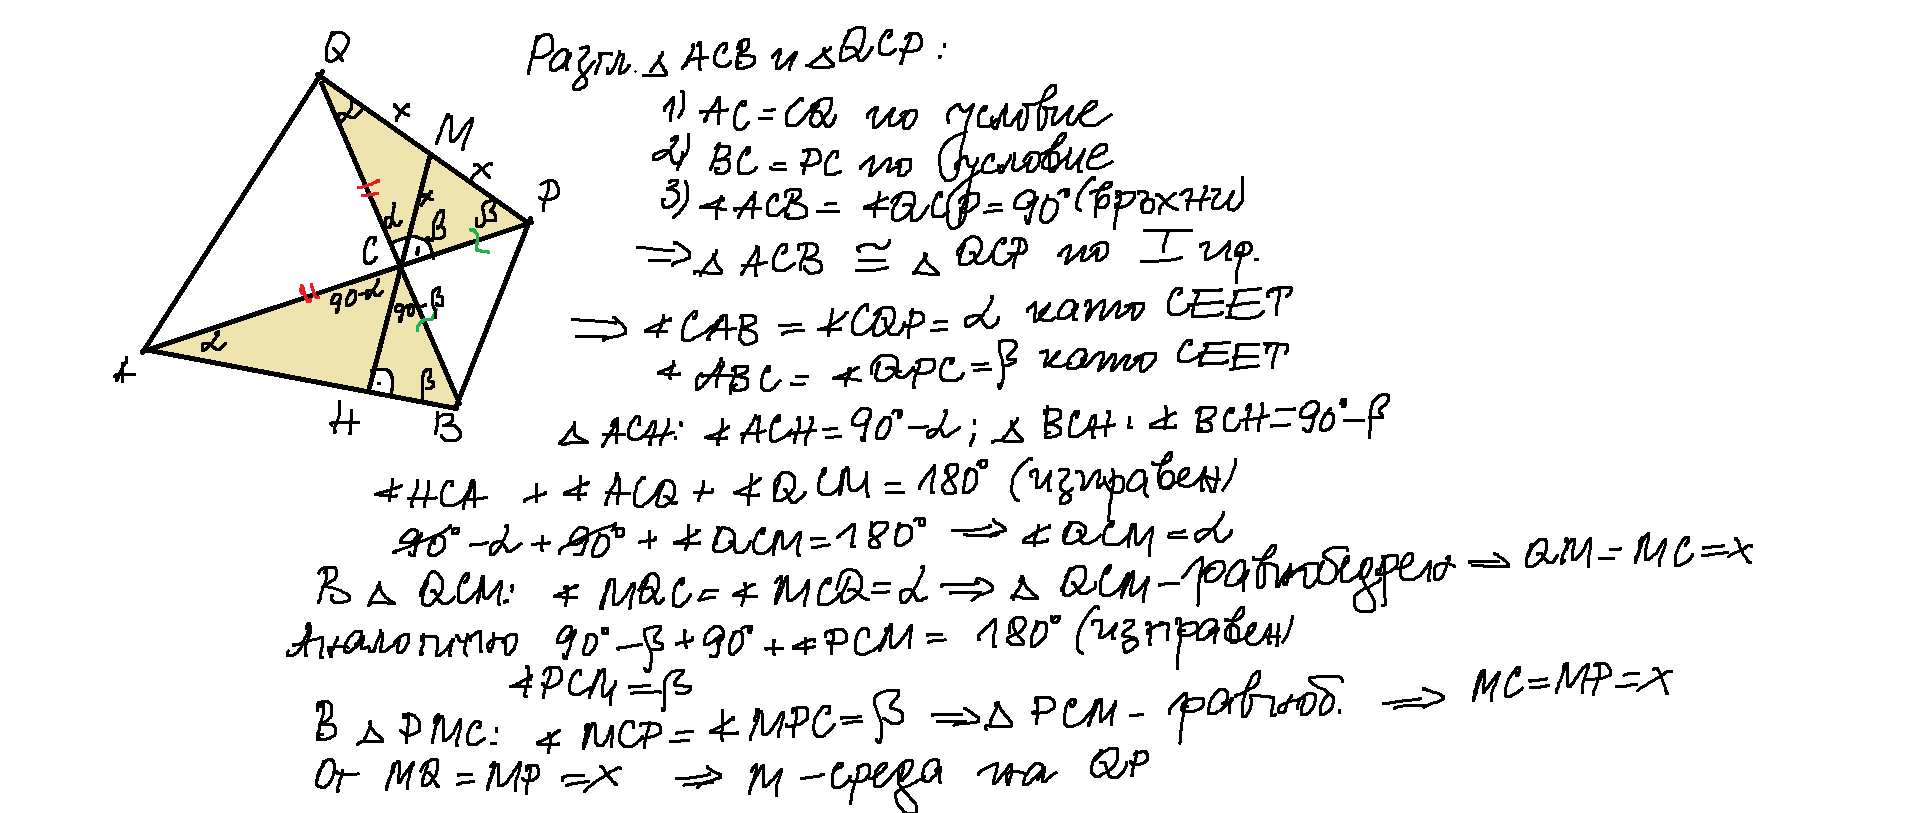 Q
α
x
M
x
P
x
β
α
β
C
90-α
90-β
α
A
β
H
B
Разгл. △ ACB и △ QCP:
1) AC = CQ по условие
2) BC = PC по условие
3) ∢ ACB = ∢ QCP = 90° (връхни)
⇒ △ ACB ≅ △ QCP по I пр.
⇒ ∢ CAB = ∢ CQP = α като СЕЕТ
∢ ABC = ∢ QPC = β като СЕЕТ
△ ACH: ∢ ACH = 90° - α ; △ BCH: ∢ BCH = 90° - β
∢ HCA + ∢ ACQ + ∢ QCM = 180° (изправен)
90° - α + 90° + ∢ QCM = 180° ⇒ ∢ QCM = α
В △ QCM: ∢ MQC = ∢ MCQ = α ⇒ △ QCM - равнобедрен ⇒ QM = MC = x
Аналогично 90° - β + 90° + ∢ PCM = 180° (изправен)
∢ PCM = β
В △ PMC: ∢ MCP = ∢ MPC = β ⇒ △ PCM - равноб. ⇒ MC = MP = x
От MQ = MP = x ⇒ M - среда на QP